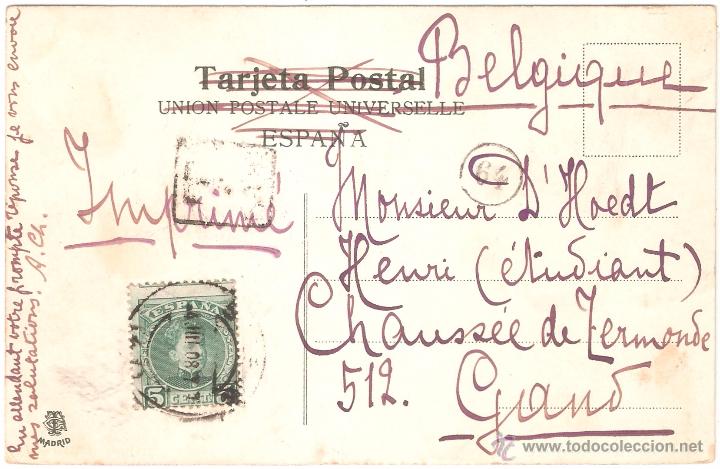 Belgique
Tarjeta Postal
UNION POSTALE UNIVERSELLE
ESPAÑA
Imprimé
64
Monsieur D'Hoedt
Henri (étudiant)
Chaussée de Termonde
512.
Gand
ESPAÑA
5 CENT. 5
MADRID
En attendant votre prompte réponse je vous envoie
mes salutations! A. Ch.
www.todocoleccion.net